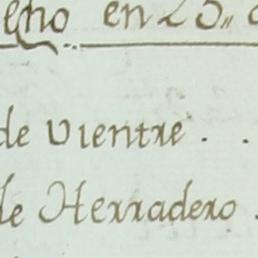 eño en 25,,
de vientre . .
de Herradero .